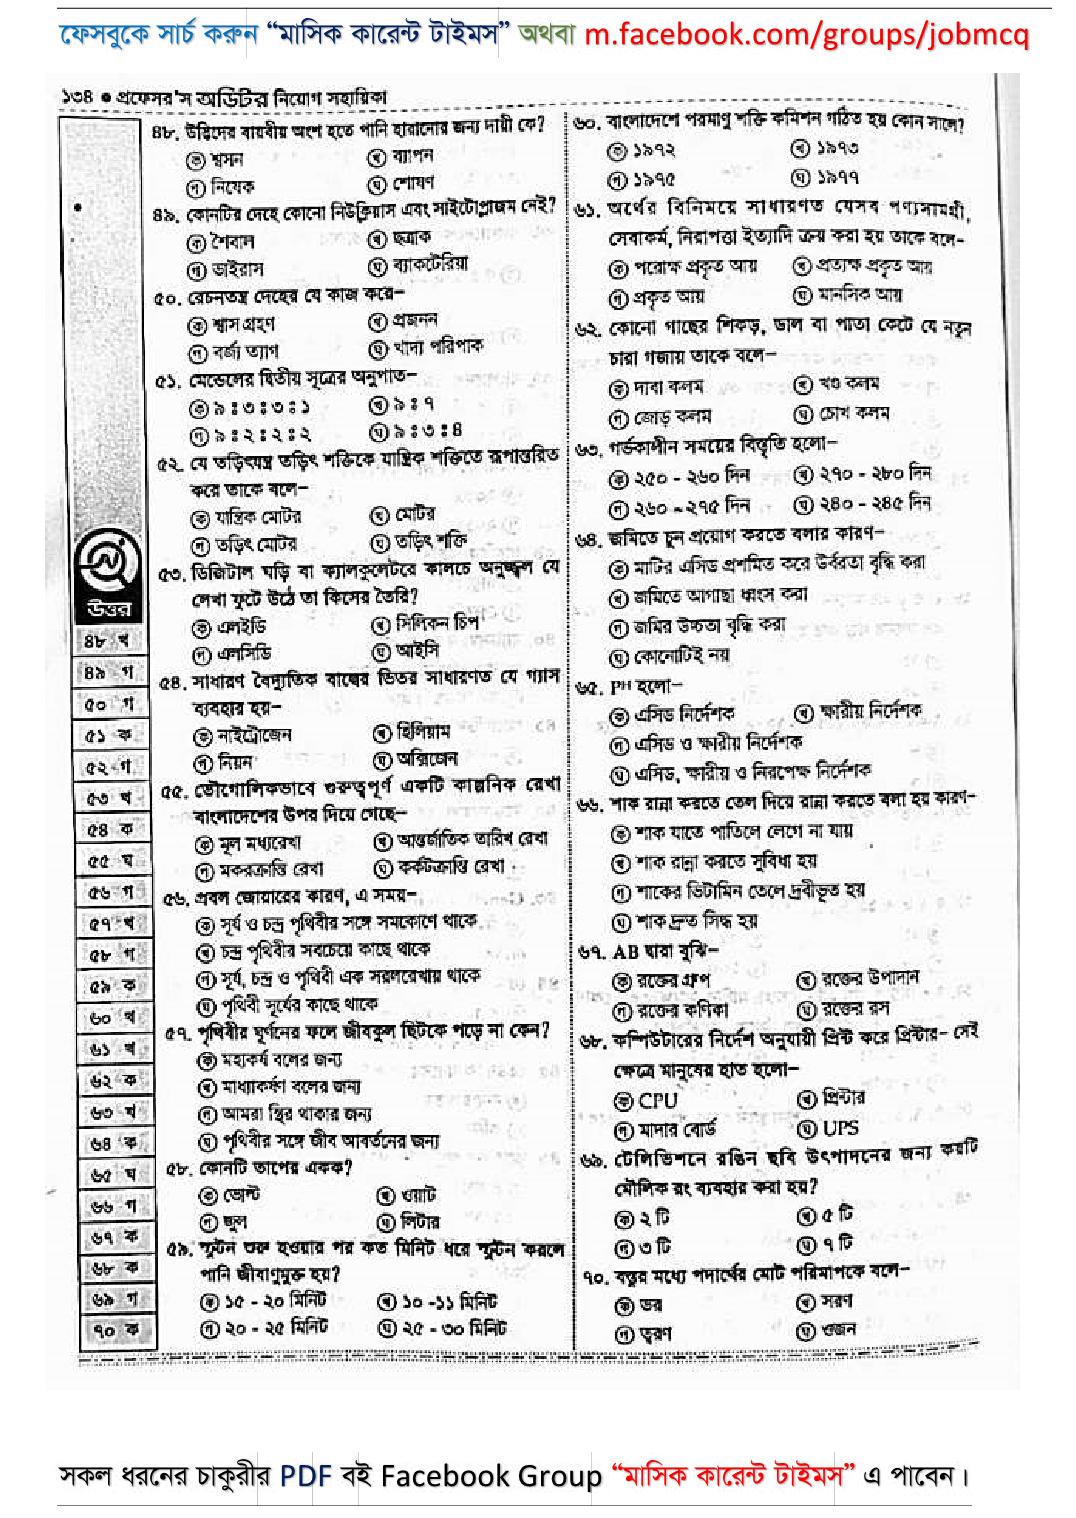 ফেসবুকে সার্চ করুন “মাসিক কারেন্ট টাইমস” অথবা m.facebook.com/groups/jobmcq
১৩৪ ● প্রফেসর'স অডিটর নিয়োগ সহায়িকা
৪৮. উদ্ভিদের বায়বীয় অংশ হতে পানি হারানোর জন্য দায়ী কে?
ⓚ শ্বসন ⓚ ব্যাপন
গ নিষেক ঘ শোষণ
৪৯. কোনটির দেহে কোনো নিউক্লিয়াস এবং সাইটোপ্লাজম নেই?
ক শৈবাল খ ছত্রাক
গ ভাইরাস ঘ ব্যাকটেরিয়া
৫০. রেচনতন্ত্র দেহের যে কাজ করে–
ক শ্বাস গ্রহণ খ প্রজনন
গ বর্জ্য ত্যাগ ঘ খাদ্য পরিপাক
৫১. মেন্ডেলের দ্বিতীয় সূত্রের অনুপাত–
ক ৯ : ৩ : ৩ : ১ খ ৯ : ৭
গ ৯ : ২ : ২ : ২ ঘ ৯ : ৩ : ৪
৫২. যে তড়িৎযন্ত্র তড়িৎ শক্তিকে যান্ত্রিক শক্তিতে রূপান্তরিত
করে তাকে বলে–
ক যান্ত্রিক মোটর খ মোটর
গ তড়িৎ মোটর ঘ তড়িৎ শক্তি
৫৩. ডিজিটাল ঘড়ি বা ক্যালকুলেটরে কালচে অনুজ্জ্বল যে
লেখা ফুটে উঠে তা কিসের তৈরি?
ক এলইডি খ সিলিকন চিপ
গ এলসিডি ঘ আইসি
৫৪. সাধারণ বৈদ্যুতিক বাল্বের ভিতর সাধারণত যে গ্যাস
ব্যবহার হয়–
ক নাইট্রোজেন খ হিলিয়াম
গ নিয়ন ঘ অক্সিজেন
৫৫. ভৌগোলিকভাবে গুরুত্বপূর্ণ একটি কাল্পনিক রেখা
বাংলাদেশের উপর দিয়ে গেছে–
ক মূল মধ্যরেখা খ আন্তর্জাতিক তারিখ রেখা
গ মকরক্রান্তি রেখা ঘ কর্কটক্রান্তি রেখা
৫৬. প্রবল জোয়ারের কারণ, এ সময়–
ক সূর্য ও চন্দ্র পৃথিবীর সঙ্গে সমকোণে থাকে
খ চন্দ্র পৃথিবীর সবচেয়ে কাছে থাকে
গ সূর্য, চন্দ্র ও পৃথিবী এক সরলরেখায় থাকে
ঘ পৃথিবী সূর্যের কাছে থাকে
৫৭. পৃথিবীর ঘূর্ণনের ফলে জীবকুল ছিটকে পড়ে না কেন?
ক মহাকর্ষ বলের জন্য
খ মাধ্যাকর্ষণ বলের জন্য
গ আমরা স্থির থাকার জন্য
ঘ পৃথিবীর সঙ্গে জীব আবর্তনের জন্য
৫৮. কোনটি তাপের একক?
ক ভোল্ট খ ওয়াট
গ জুল ঘ লিটার
৫৯. স্ফুটন শুরু হওয়ার পর কত মিনিট ধরে স্ফুটন করলে
পানি জীবাণুমুক্ত হয়?
ক ১৫ - ২০ মিনিট খ ১০ -১১ মিনিট
গ ২০ - ২৫ মিনিট ঘ ২৫ - ৩০ মিনিট
৬০. বাংলাদেশে পরমাণু শক্তি কমিশন গঠিত হয় কোন সালে?
ক ১৯৭২ খ ১৯৭৩
গ ১৯৭৫ ঘ ১৯৭৭
৬১. অর্থের বিনিময়ে সাধারণত যেসব পণ্যসামগ্রী,
সেবাকর্ম, নিরাপত্তা ইত্যাদি ক্রয় করা হয় তাকে বলে–
ক পরোক্ষ প্রকৃত আয় খ প্রত্যক্ষ প্রকৃত আয়
গ প্রকৃত আয় ঘ মানসিক আয়
৬২. কোনো গাছের শিকড়, ডাল বা পাতা কেটে যে নতুন
চারা গজায় তাকে বলে–
ক দাবা কলম খ খণ্ড কলম
গ জোড় কলম ঘ চোখ কলম
৬৩. গর্ভকালীন সময়ের বিস্তৃতি হলো–
ক ২৫০ - ২৬০ দিন খ ২৭০ - ২৮০ দিন
গ ২৬০ - ২৭৫ দিন ঘ ২৪০ - ২৪৫ দিন
৬৪. জমিতে চুন প্রয়োগ করতে বলার কারণ–
ক মাটির এসিড প্রশমিত করে উর্বরতা বৃদ্ধি করা
খ জমিতে আগাছা ধ্বংস করা
গ জমির উচ্চতা বৃদ্ধি করা
ঘ কোনোটিই নয়
৬৫. PH হলো–
ক এসিড নির্দেশক খ ক্ষারীয় নির্দেশক
গ এসিড ও ক্ষারীয় নির্দেশক
ঘ এসিড, ক্ষারীয় ও নিরপেক্ষ নির্দেশক
৬৬. শাক রান্না করতে তেল দিয়ে রান্না করতে বলা হয় কারণ–
ক শাক যাতে পাতিলে লেগে না যায়
খ শাক রান্না করতে সুবিধা হয়
গ শাকের ভিটামিন তেলে দ্রবীভূত হয়
ঘ শাক দ্রুত সিদ্ধ হয়
৬৭. AB দ্বারা বুঝি–
ক রক্তের গ্রুপ খ রক্তের উপাদান
গ রক্তের কণিকা ঘ রক্তের রস
৬৮. কম্পিউটারের নির্দেশ অনুযায়ী প্রিন্ট করে প্রিন্টার– সেই
ক্ষেত্রে মানুষের হাত হলো–
ক CPU খ প্রিন্টার
গ মাদার বোর্ড ঘ UPS
৬৯. টেলিভিশনে রঙিন ছবি উৎপাদনের জন্য কয়টি
মৌলিক রং ব্যবহার করা হয়?
ক ২ টি খ ৫ টি
গ ৩ টি ঘ ৭ টি
৭০. বস্তুর মধ্যে পদার্থের মোট পরিমাপকে বলে–
ক ভর খ সরণ
গ ত্বরণ ঘ ওজন
উত্তর
৪৮ খ
৪৯ গ
৫০ গ
৫১ ক
৫২ গ
৫৩ খ
৫৪ ক
৫৫ ঘ
৫৬ গ
৫৭ খ
৫৮ গ
৫৯ ক
৬০ খ
৬১ খ
৬২ ক
৬৩ খ
৬৪ ক
৬৫ ঘ
৬৬ গ
৬৭ ক
৬৮ ক
৬৯ গ
৭০ ক
সকল ধরনের চাকুরীর PDF বই Facebook Group “মাসিক কারেন্ট টাইমস” এ পাবেন।